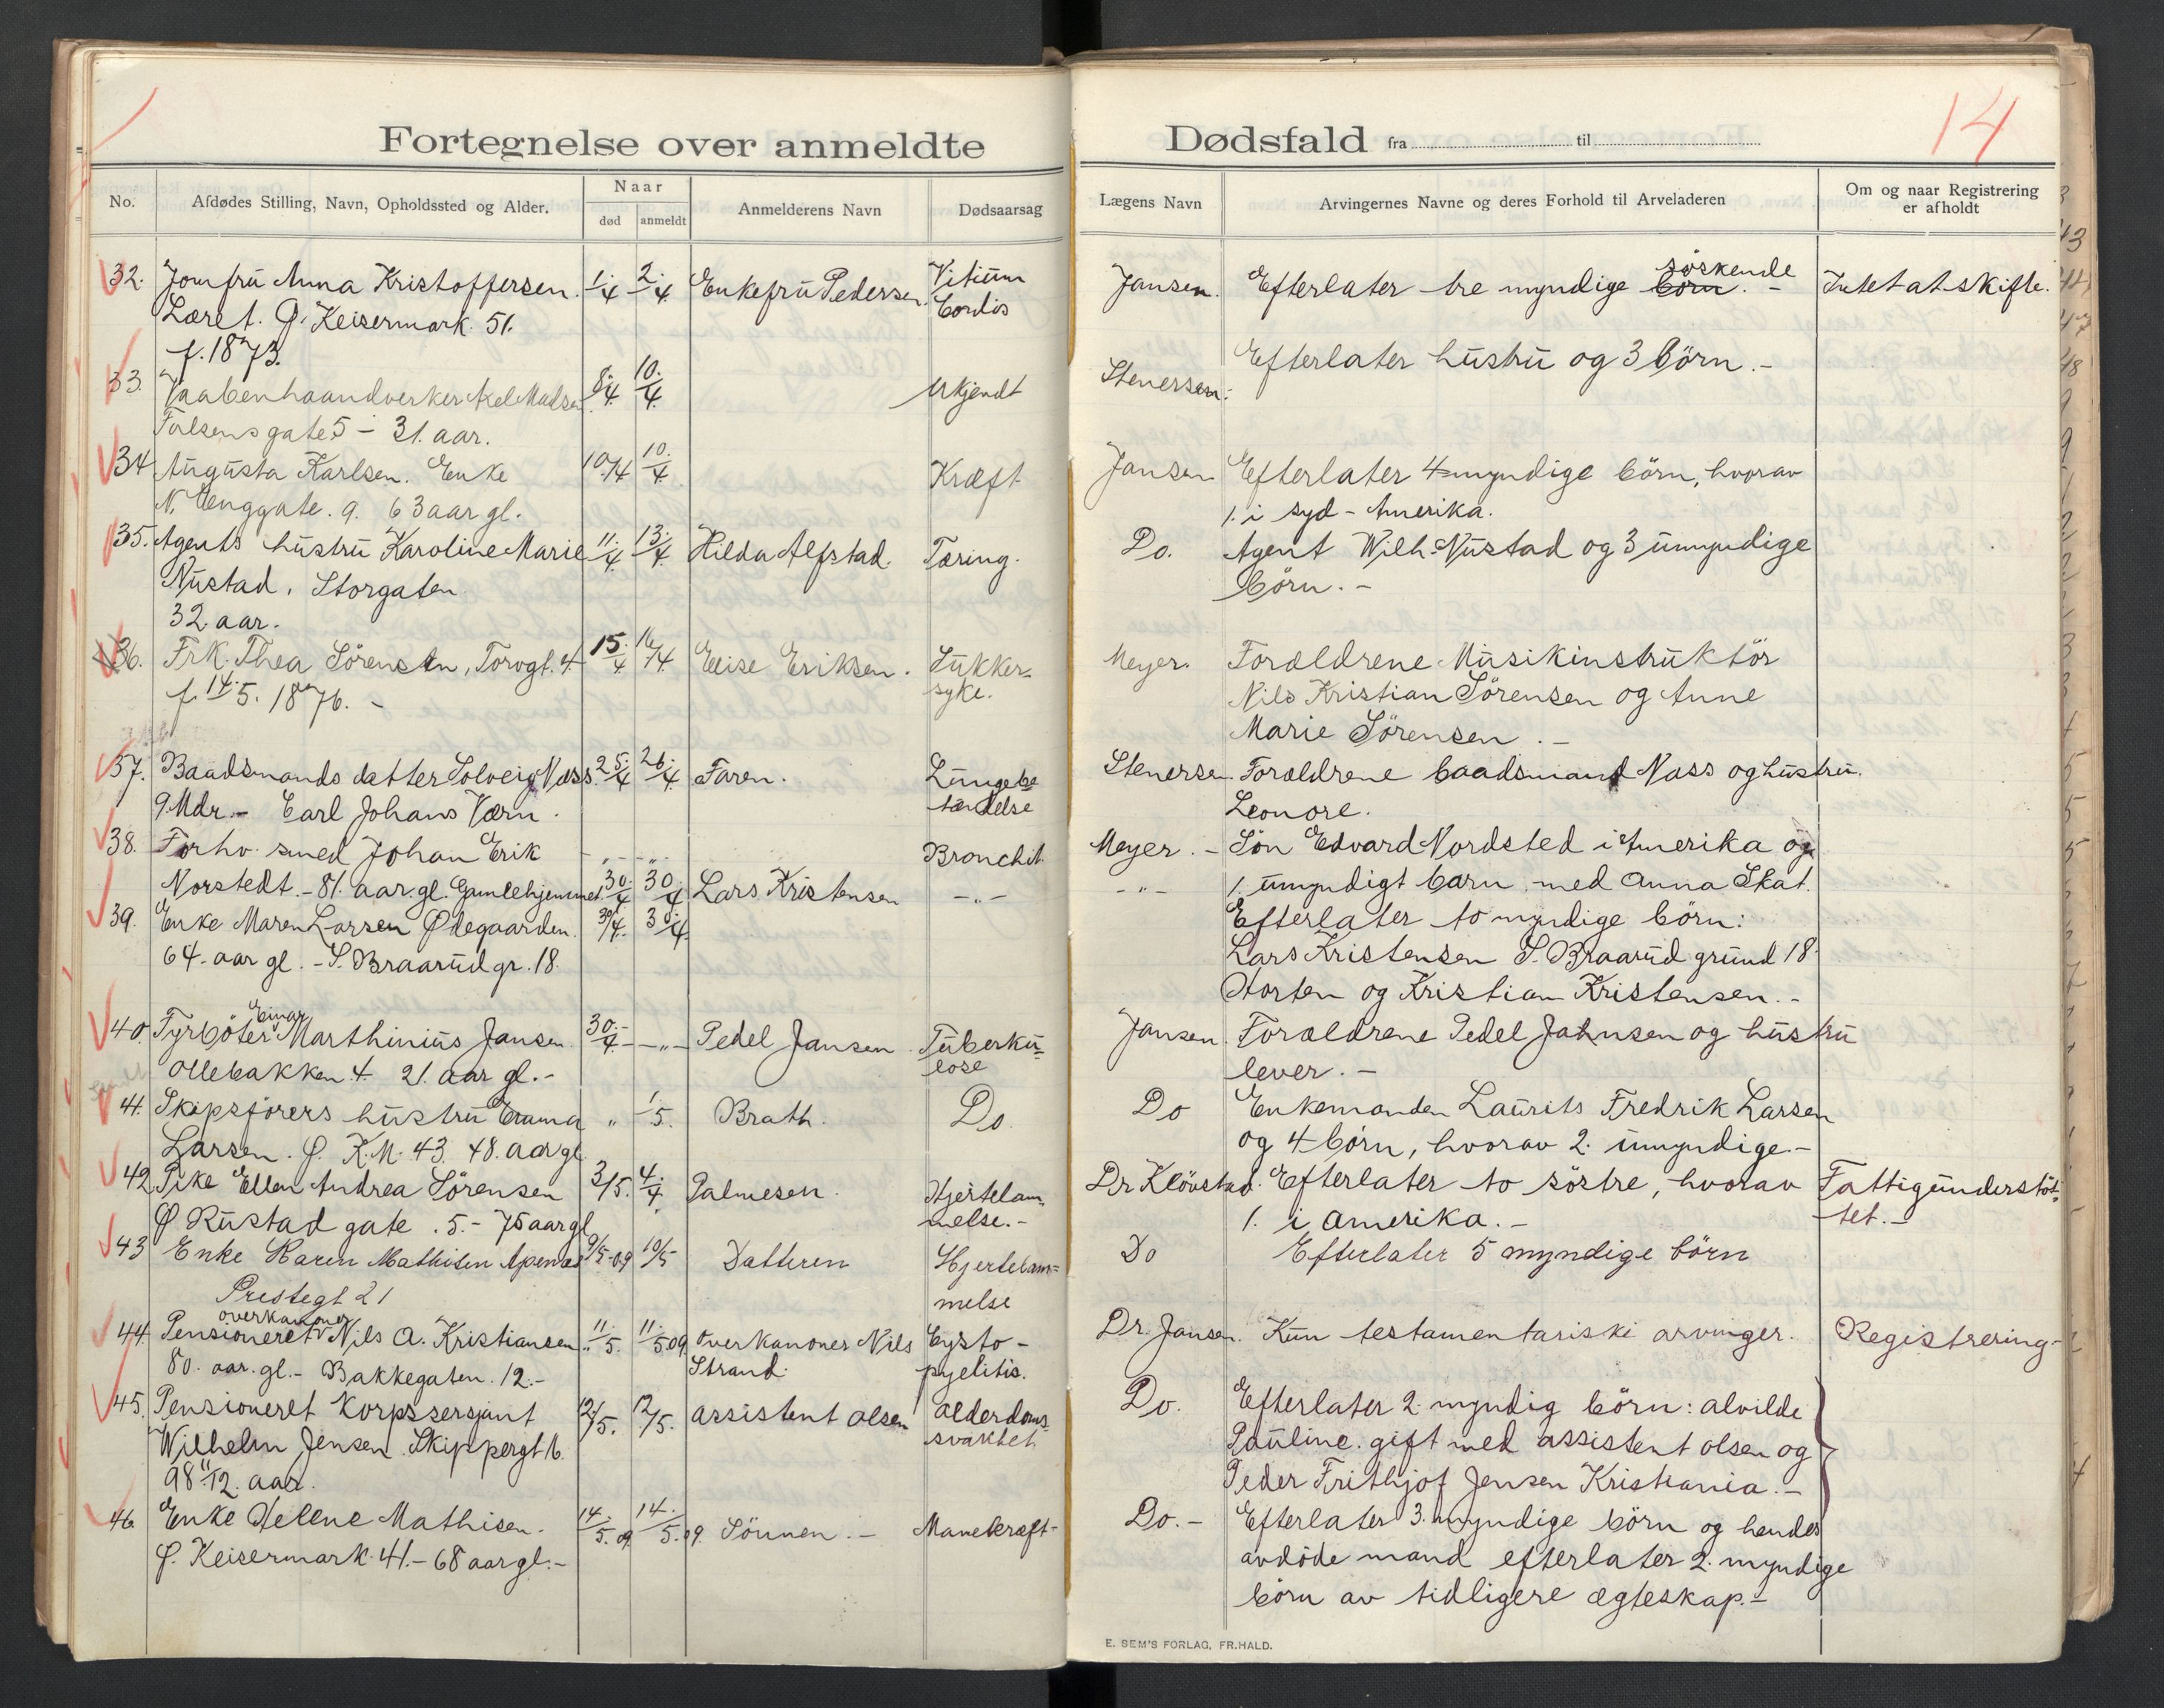 14
Fortegnelse over anmeldte Dødsfald fra til
No.
Afdødes Stilling, Navn, Opholdssted og Alder.
Naar
død
anmeldt
Anmelderens Navn
Dødsaarsag
Lægens Navn
Arvingernes Navne og deres Forhold til Arveladeren
Om og naar Registrering
er afholdt
32. Jomfru Anna Kristoffersen. 1/4 2/4 Enkefru Pedersen. Vitium
Læret. Ø. Keisermark. 51. Cordis
f. 1873.
33. Vaabenhaandverker Axel Madsen 8/4 10/4 Ukjendt
Falsensgate 5 - 31. aar.
34 Augusta Karlsen. Enke 10/4 10/4 Kræft
N. Enggate. 9. 63 aar gl.
35. Agents hustru Karoline Marie 11/4 13/4 Hilda Alfstad. Tæring.
Nustad, Storgaten
32. aar.
36. Frk. Thea Sörensen, Torvgt. 4 15/4 16/4 Elise Eriksen. Sukker-
f. 14/5. 1876. - syke.
37. Baadsmands datter Solveig Næss. 25/4 26/4 Faren. Lungebe
9. Mdr. - Carl Johans Værn. tændelse
38. Forhv. smed Johan Erik - " - " Bronchit
Norstedt. - 81. aar. gl. Gamlehjemmet 30/4 30/4 Lars Kristensen - " -
39. Enke Maren Larsen Ødegaarden. 30/4. 30/4.
64. aar gl. - S. Braarud gr. 18.
Einar
40. Fyrböter Marthinius Jansen. 30/4. - " - Pedel Jansen. Tuberku-
Ollebakken. 4. 21. aar gl. - lose
41. Skipsförers hustru Emma " 1/5. Brath. Do.
Larsen. Ø. K.M. 43. 48. aar gl
42. Pike Ellen Andrea Sörensen 3/5. 4/4. Palmesen. Hjertelam-
Ø Rustad gate. 5. - 75 aar gl melse. -
43 Enke Karen Mathisen Apenæs 9/5-09 10/5 Datteren Hjertelam=
Prestegt 21 melse
overkanoner
44. Pensioneret Nils A. Kristiansen 11/5. 11/5 09. Overkanoner Nils Cysto-
80. aar. gl. - Bakkegaten. 12. - Strand. pyelitis.
45. Pensioneret Korpssersjant 12/5. 12/5. Assistent Olsen Alderdoms
Wilhelm Jensen. Skippergt. 16. svakhet
98 11/12. aar.
46. Enke Helene Mathisen. 14/5. 09. 14/5. 09. Sönnen. - Mavekræft-
Ø. Keisermark. 41. - 68 aar gl. -
Jansen. Efterlater tre myndige börn. söskende - Intet at skifte.
Stenersen. Efterlater hustru og 3 börn. -
Jansen Efterlater 4 myndige börn, hvorav
1. i Syd-Amerika.
Do. Agent Wilh. Nustad og 3 umyndige
börn. -
Meyer. Forældrene Musikinstruktör
Nils Kristian Sörensen og Anne
Marie Sörensen. -
Stenersen. Forældrene baadsmand Næss og hustru.
Leonore.
Meyer. - Sön Edvard Nordsted i Amerika og
- " - 1. umyndigt barn, med Anna Skat.
Efterlater to myndige börn:
Lars Kristensen S. Braarud grund 18.
Horten og Kristian Kristensen. -
Jansen. Forældrene Pedel Jahnsen og hustru
lever. -
Do Enkemanden Laurits Fredrik Larsen
og 4 börn, hvorav 2. umyndige. -
Dr Klövstad. Efterlater to söstre, hvorav Fattigunderstöt-
1. i Amerika. - tet. -
Do Efterlater 5 myndige börn
Dr. Jansen. Kun testamentariski arvinger. Registrering -
Do. Efterlater 2. myndig börn: Alvilde
Pauline. gift med Assistent Olsen og
Peder Frithjof Jensen Kristiania. -
Do. - Efterlater 3. myndige börn og hendes
avdöde mand efterlater 2. myndige
börn av tidligere ægteskap. -
E. SEM'S FORLAG, FR.HALD.